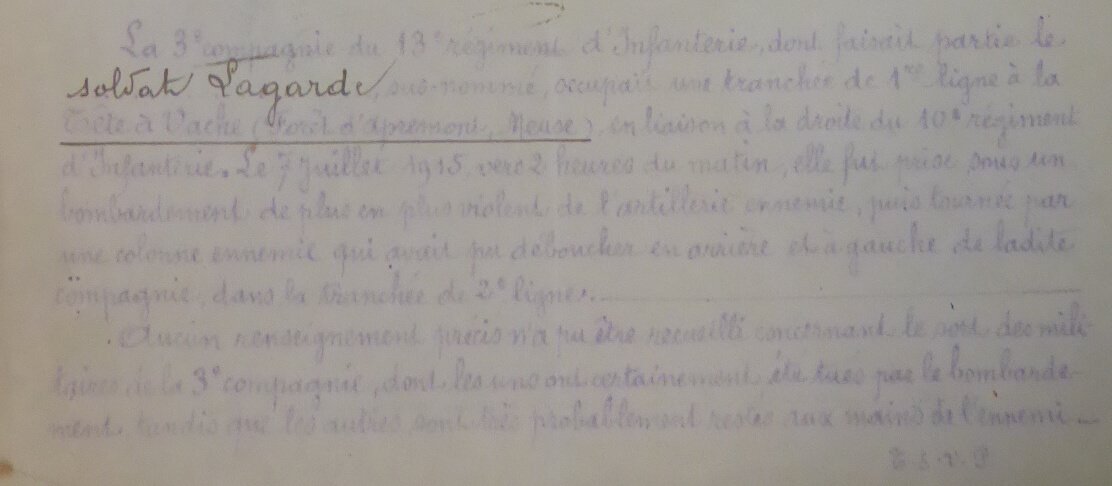 La 3e compagnie du 13e régiment d'Infanterie, dont faisait partie le
soldat Lagarde, sus-nommé, occupait une tranchée de 1re ligne à la
Tête à Vache (Forêt d'Apremont, Meuse), en liaison à la droite du 10e régiment
d'Infanterie. Le 7 Juillet 1915, vers 2 heures du matin, elle fut prise sous un
bombardement de plus en plus violent de l'artillerie ennemie, puis tournée par
une colonne ennemie qui avait pu déboucher en arrière et à gauche de ladite
compagnie, dans la tranchée de 2e ligne.
Aucun renseignement précis n'a pu être recueilli concernant le sort des mili-
taires de la 3e compagnie, dont les uns ont certainement été tués par le bombarde-
ment tandis que les autres sont très probablement restés aux mains de l'ennemi...
T.S.V.P